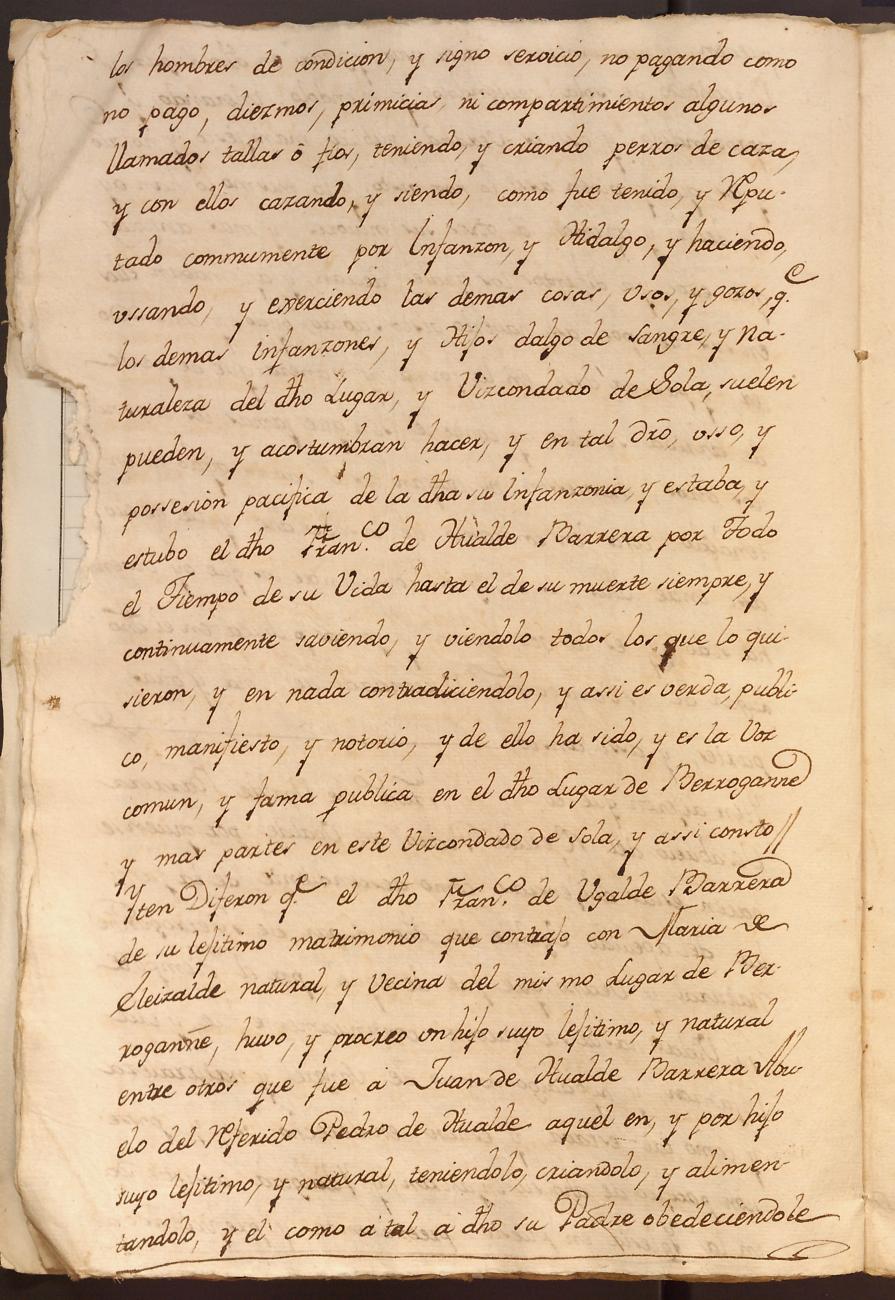 los hombres de condicion, y signo servicio, no pagando como
no pago, diezmos, primicias, ni compartimientos algunos
llamados tallas ó fios, teniendo, y criando perros de caza,
y con ellos cazando, y siendo, como fue tenido, y Repu-
tado commumente por Infanzon, y Hidalgo, y haciendo,
ussando, y exerciendo las demas cosas, Usos, y gozos, q.e
los demas infanzones, y Hijos dalgo de sangre, y Na-
turaleza del dho Lugar, y Vizcondado de Sola, suelen
pueden, y acostumbran hacer, y en tal dro, usso, y
possesion pacifica de la dha su Infanzonia, y estaba, y
estubo el dho Fran.co de Hualde Barrera por Todo
el Tiempo de su Vida hasta el de su muerte siempre, y
continuamente saviendo, y viendolo todos los que lo qui-
sieron, y en nada contradiciendolo, y assi es verda, publi-
co, manifiesto, y notorio, y de ello ha sido, y es la Voz
comun, y fama publica en el dho Lugar de Berroganne
y mas partes en este Vizcondado de Sola, y assi consto //
Yten Dijeron q.e el dho Fran.co de Ugalde Barrera
de su lejitimo matrimonio que contrajo con Maria de
Eleizalde natural, y Vecina del mismo Lugar de Ber-
roganñe, huvo, y procreo un hijo suyo lejitimo, y natural
entre otros que fue á Juan de Hualde Barrera Abu-
elo del Referido Pedro de Hualde aquel en, y por hijo
suyo lejitimo, y natural, teniendolo, criandolo, y alimen-
tandolo, y el como a tal a dho su Padre obedeciendole